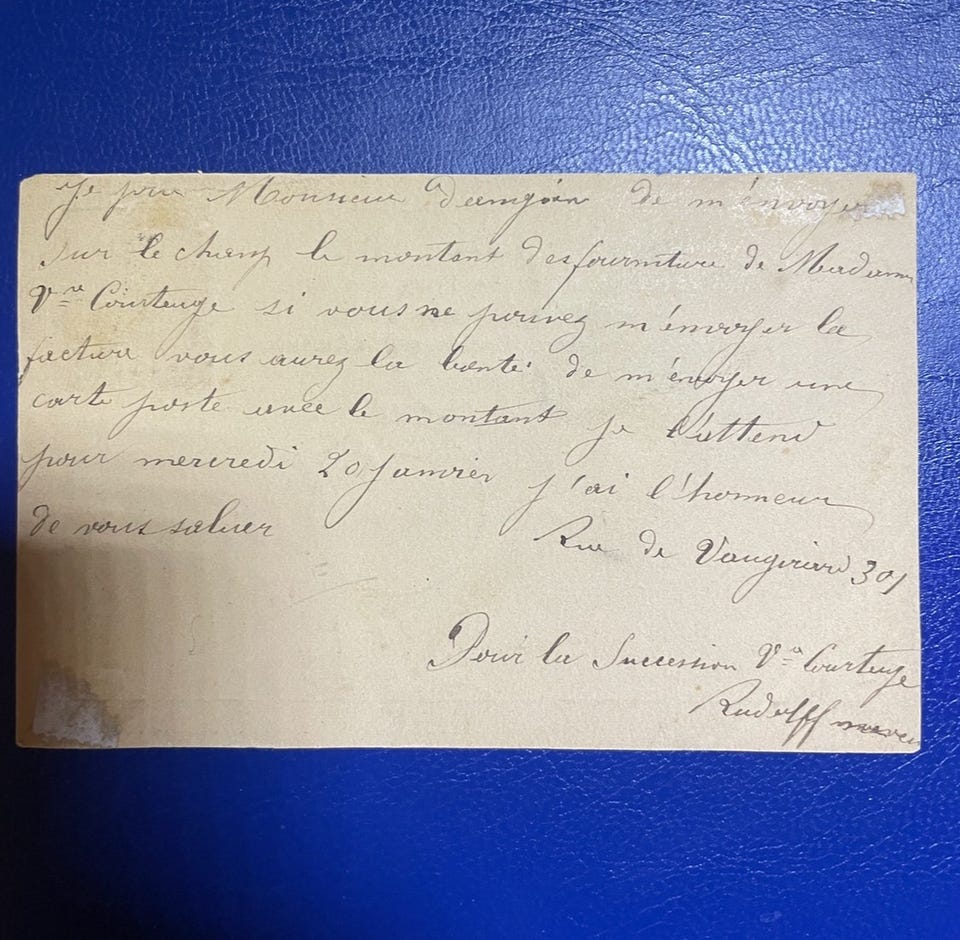 Je prie Monsieur de m'envoyer
sur le champ le montant des fourniture de Madame
Vve Courteuge si vous ne pouvez m'envoyer la
facture vous aurez la bonté de m'envoyer une
carte poste avec le montant je l'attend
pour mercredi 20 Janvier j'ai l'honneur
de vous saluer
Rue de Vaugirard 301
Pour la Succession Vve Courteuge
Rudolff neveu